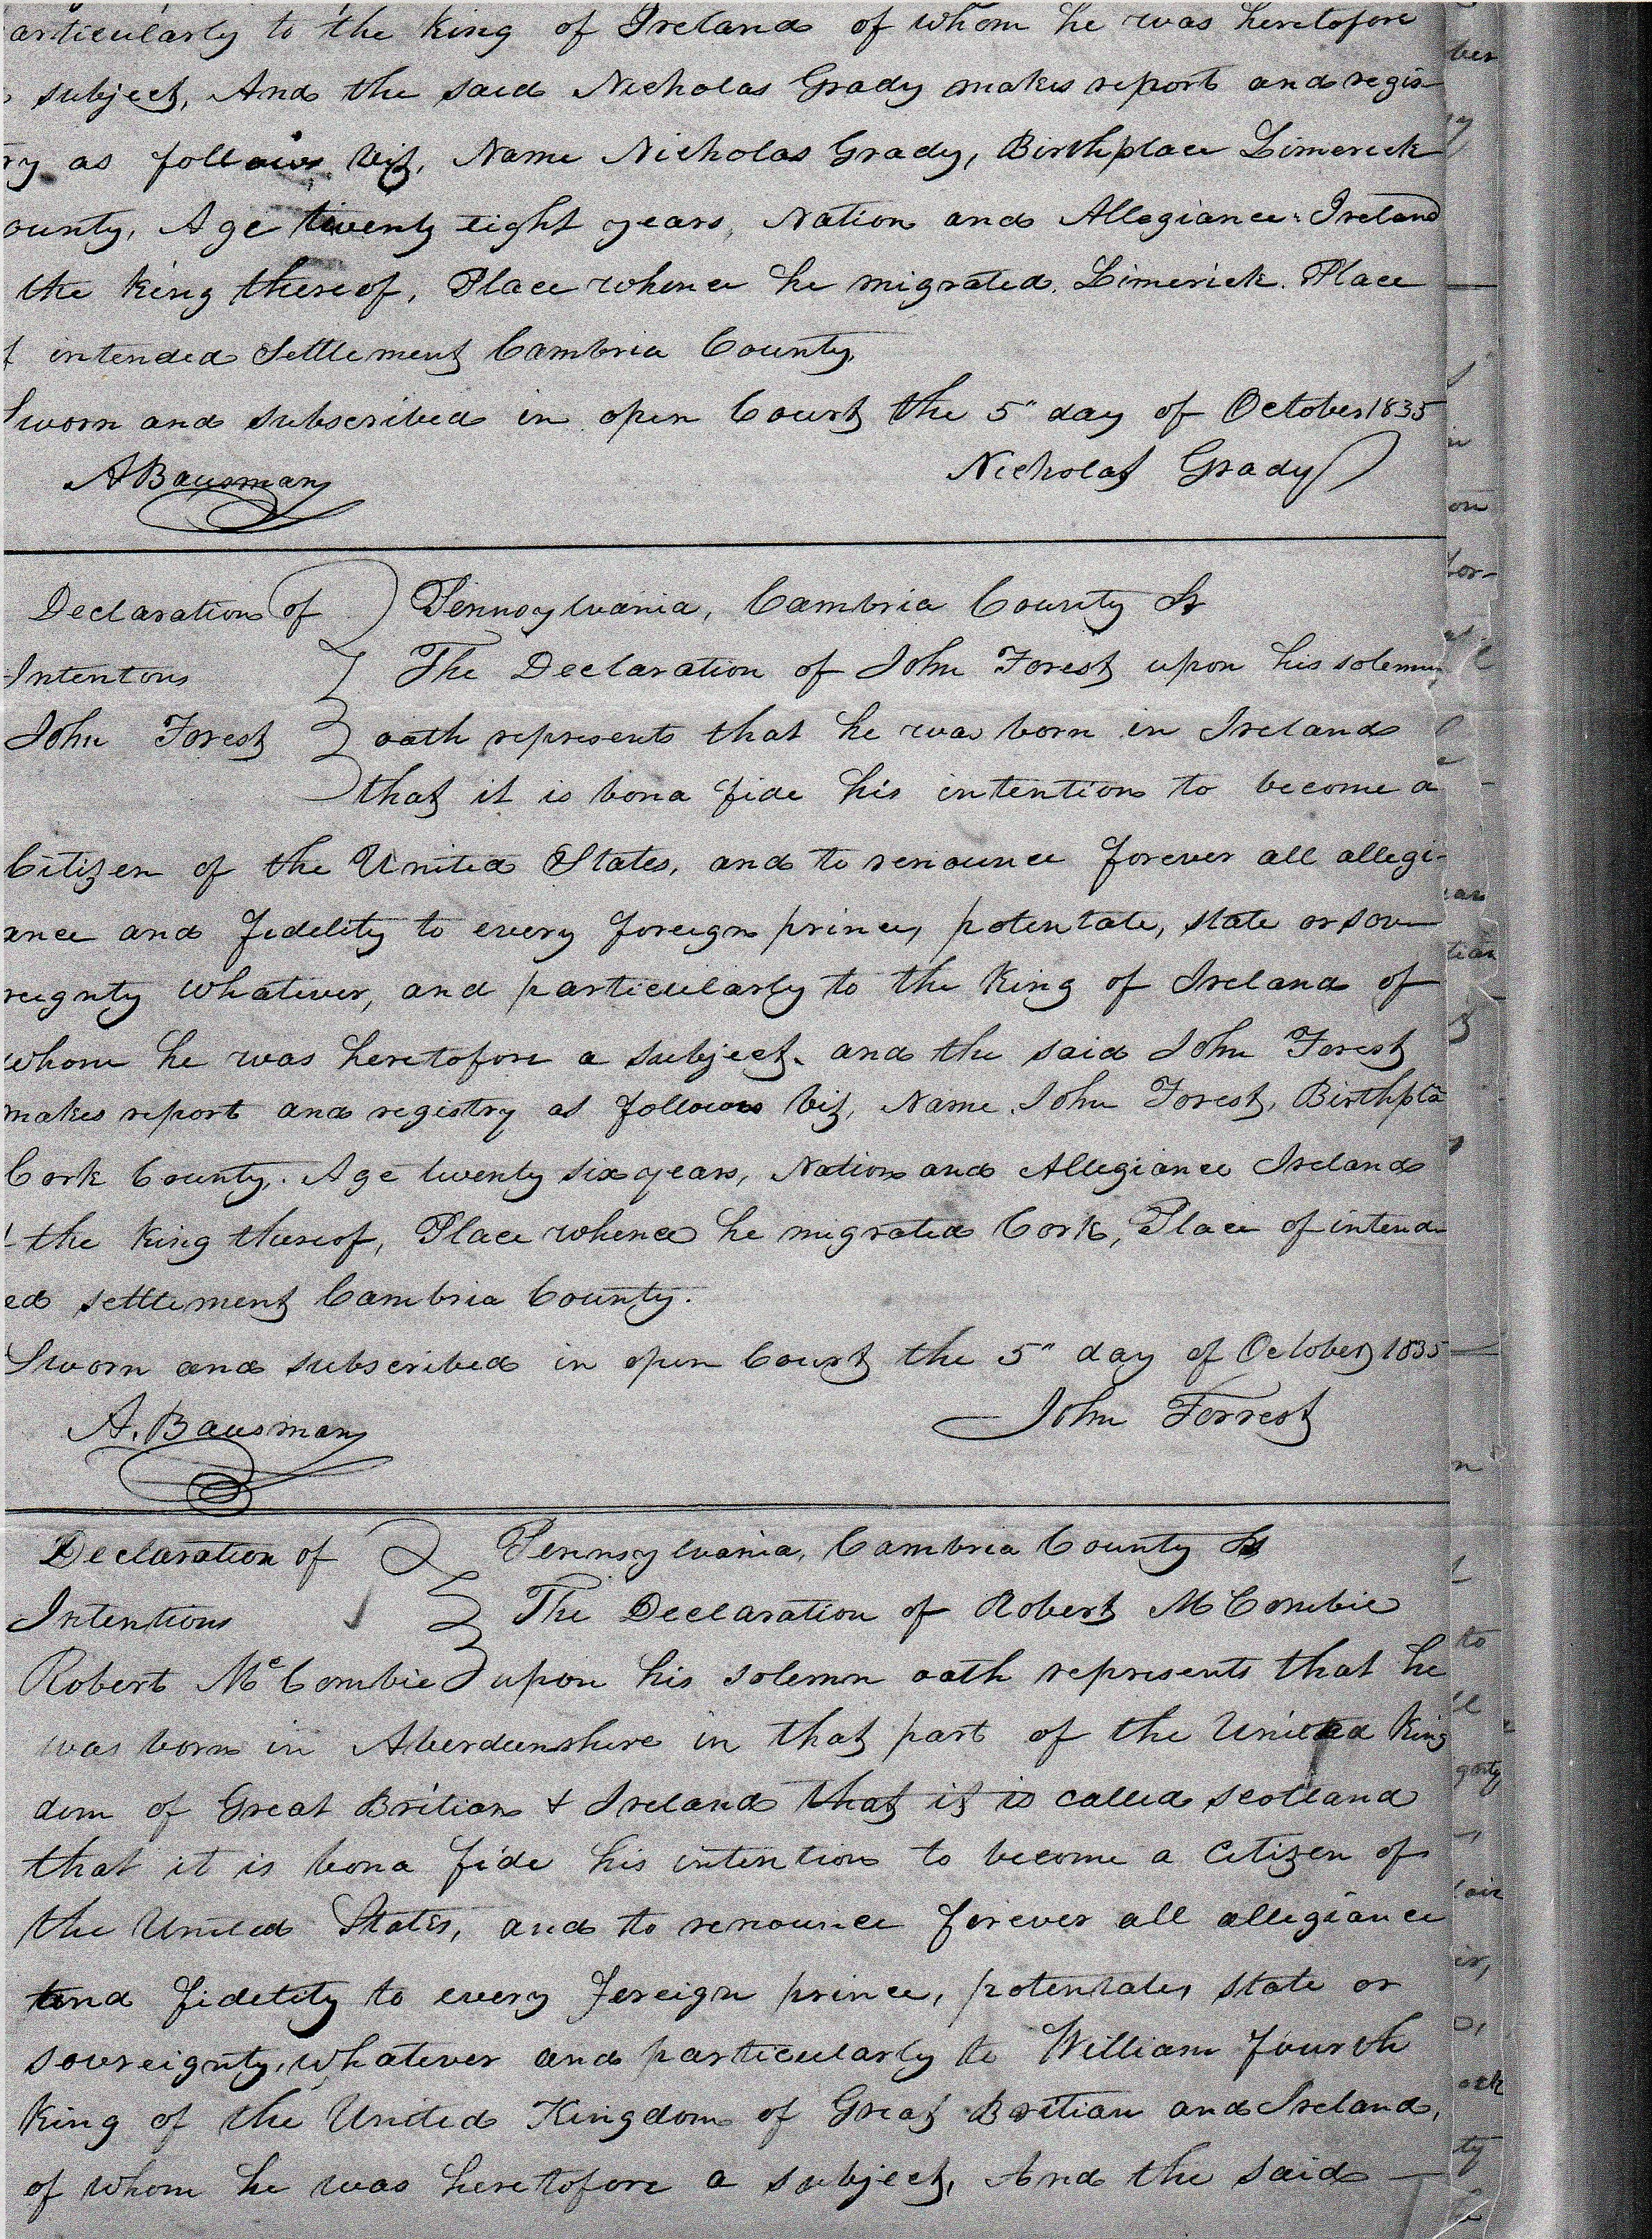 articularly to the King of Ireland of whom he was heretofore
subject, And the said Nicholas Grady makes report and regis-
ry as follows viz, Name Nicholas Grady, Birthplace Limerick
ounty, Age twenty eight years, Nation and Allegiance Ireland
the King thereof, Place whence he migrated, Limerick. Place
f intended Settlement Cambria County,
Sworn and subscribed in open Court the 5" day of October 1835
A Bausman Nicholas Grady
Declaration of Pennsylvania, Cambria County Ss
Intentons The Declaration of John Forest upon his solemn
John Forest oath represents that he was born in Ireland
that it is bona fide his intention to become a
Citizen of the United States, and to renounce forever all allegi-
ance and fidelity to every foreign prince, potentate, state or sov-
reignty whatever, and particularly to the King of Ireland of
whom he was heretofore a subject, and the said John Forest
makes report and registry as follows viz, Name, John Forest, Birthpla
Cork County. Age twenty six years, Nation and Allegiance Ireland
the King thereof, Place whence he migrated Cork, Place of intend-
ed settlement Cambria County.
Sworn and subscribed in open Court the 5" day of October 1835
A. Bausman John Forrest
Declaration of Pennsylvania, Cambria County Ss
Intentions The Declaration of Robert McCombie
Robert McCombie upon his solemn oath represents that he
was born in Aberdeenshire in that part of the United King
dom of Great Britian & Ireland that it is called Scotland
that it is bona fide his intention to become a Citizen of
the United States, and to renounce forever all allegiance
and fidelity to every foreign prince, potentate, state or
sovereignty, whatever and particularly to William fourth
King of the United Kingdom of Great Britian and Ireland,
of whom he was heretofore a subject, And the said